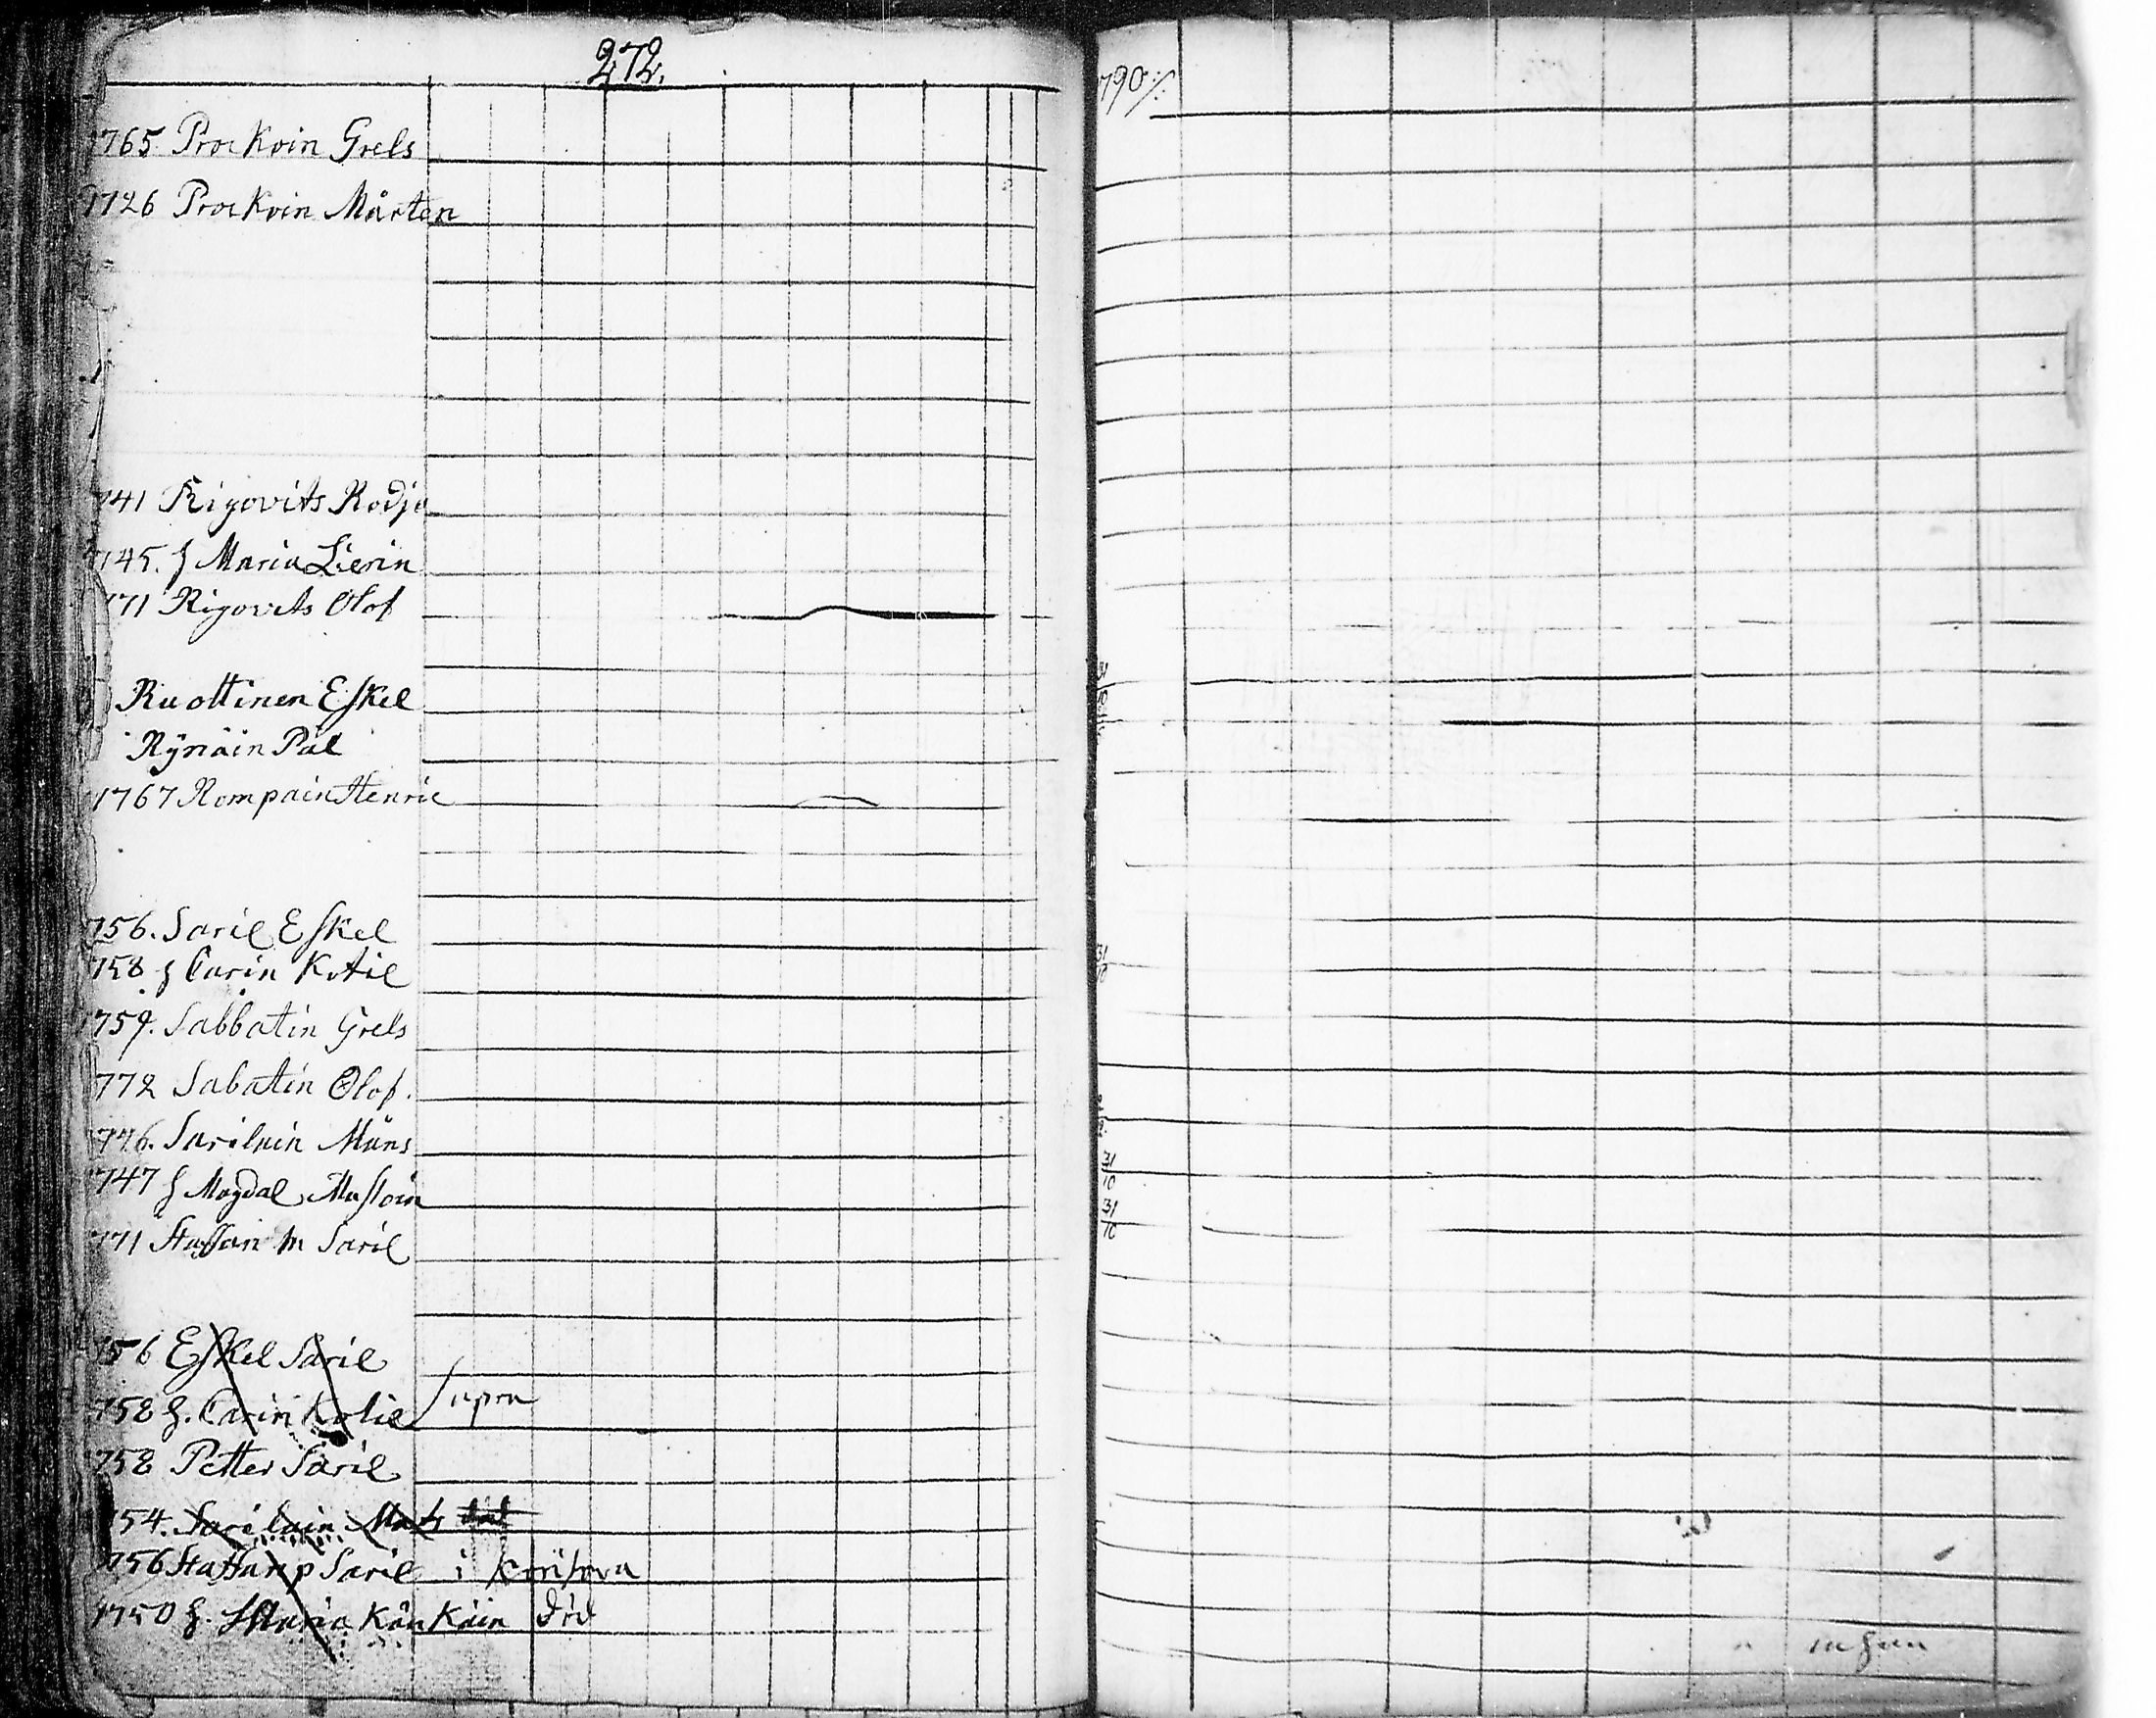 272.
1765 Prockoin Grels
1726 Prockoin Mårten
741 Rigovits Rodjo
1745. h Maria Lierin
771 Rigovits Olof
Ruottinen Eskel
Rÿnäin Pål
1767 Rompain Henric
756. Saril Eskel
758 h Carin Kotil
1759. Sabbatin Grels
772 Sabatin Olof.
776. Sarilain Måns
747 h Magdal Musloin
771 Staffan M Saril
756 Eskel Saril
758 h. Carin Kotil supra
758 Petter Saril
754. Sarilain Mats död
756 Staffan p Saril i
1750 h. Maria Käukäin död
790 /.
31
10
31
10
31
10
31
10